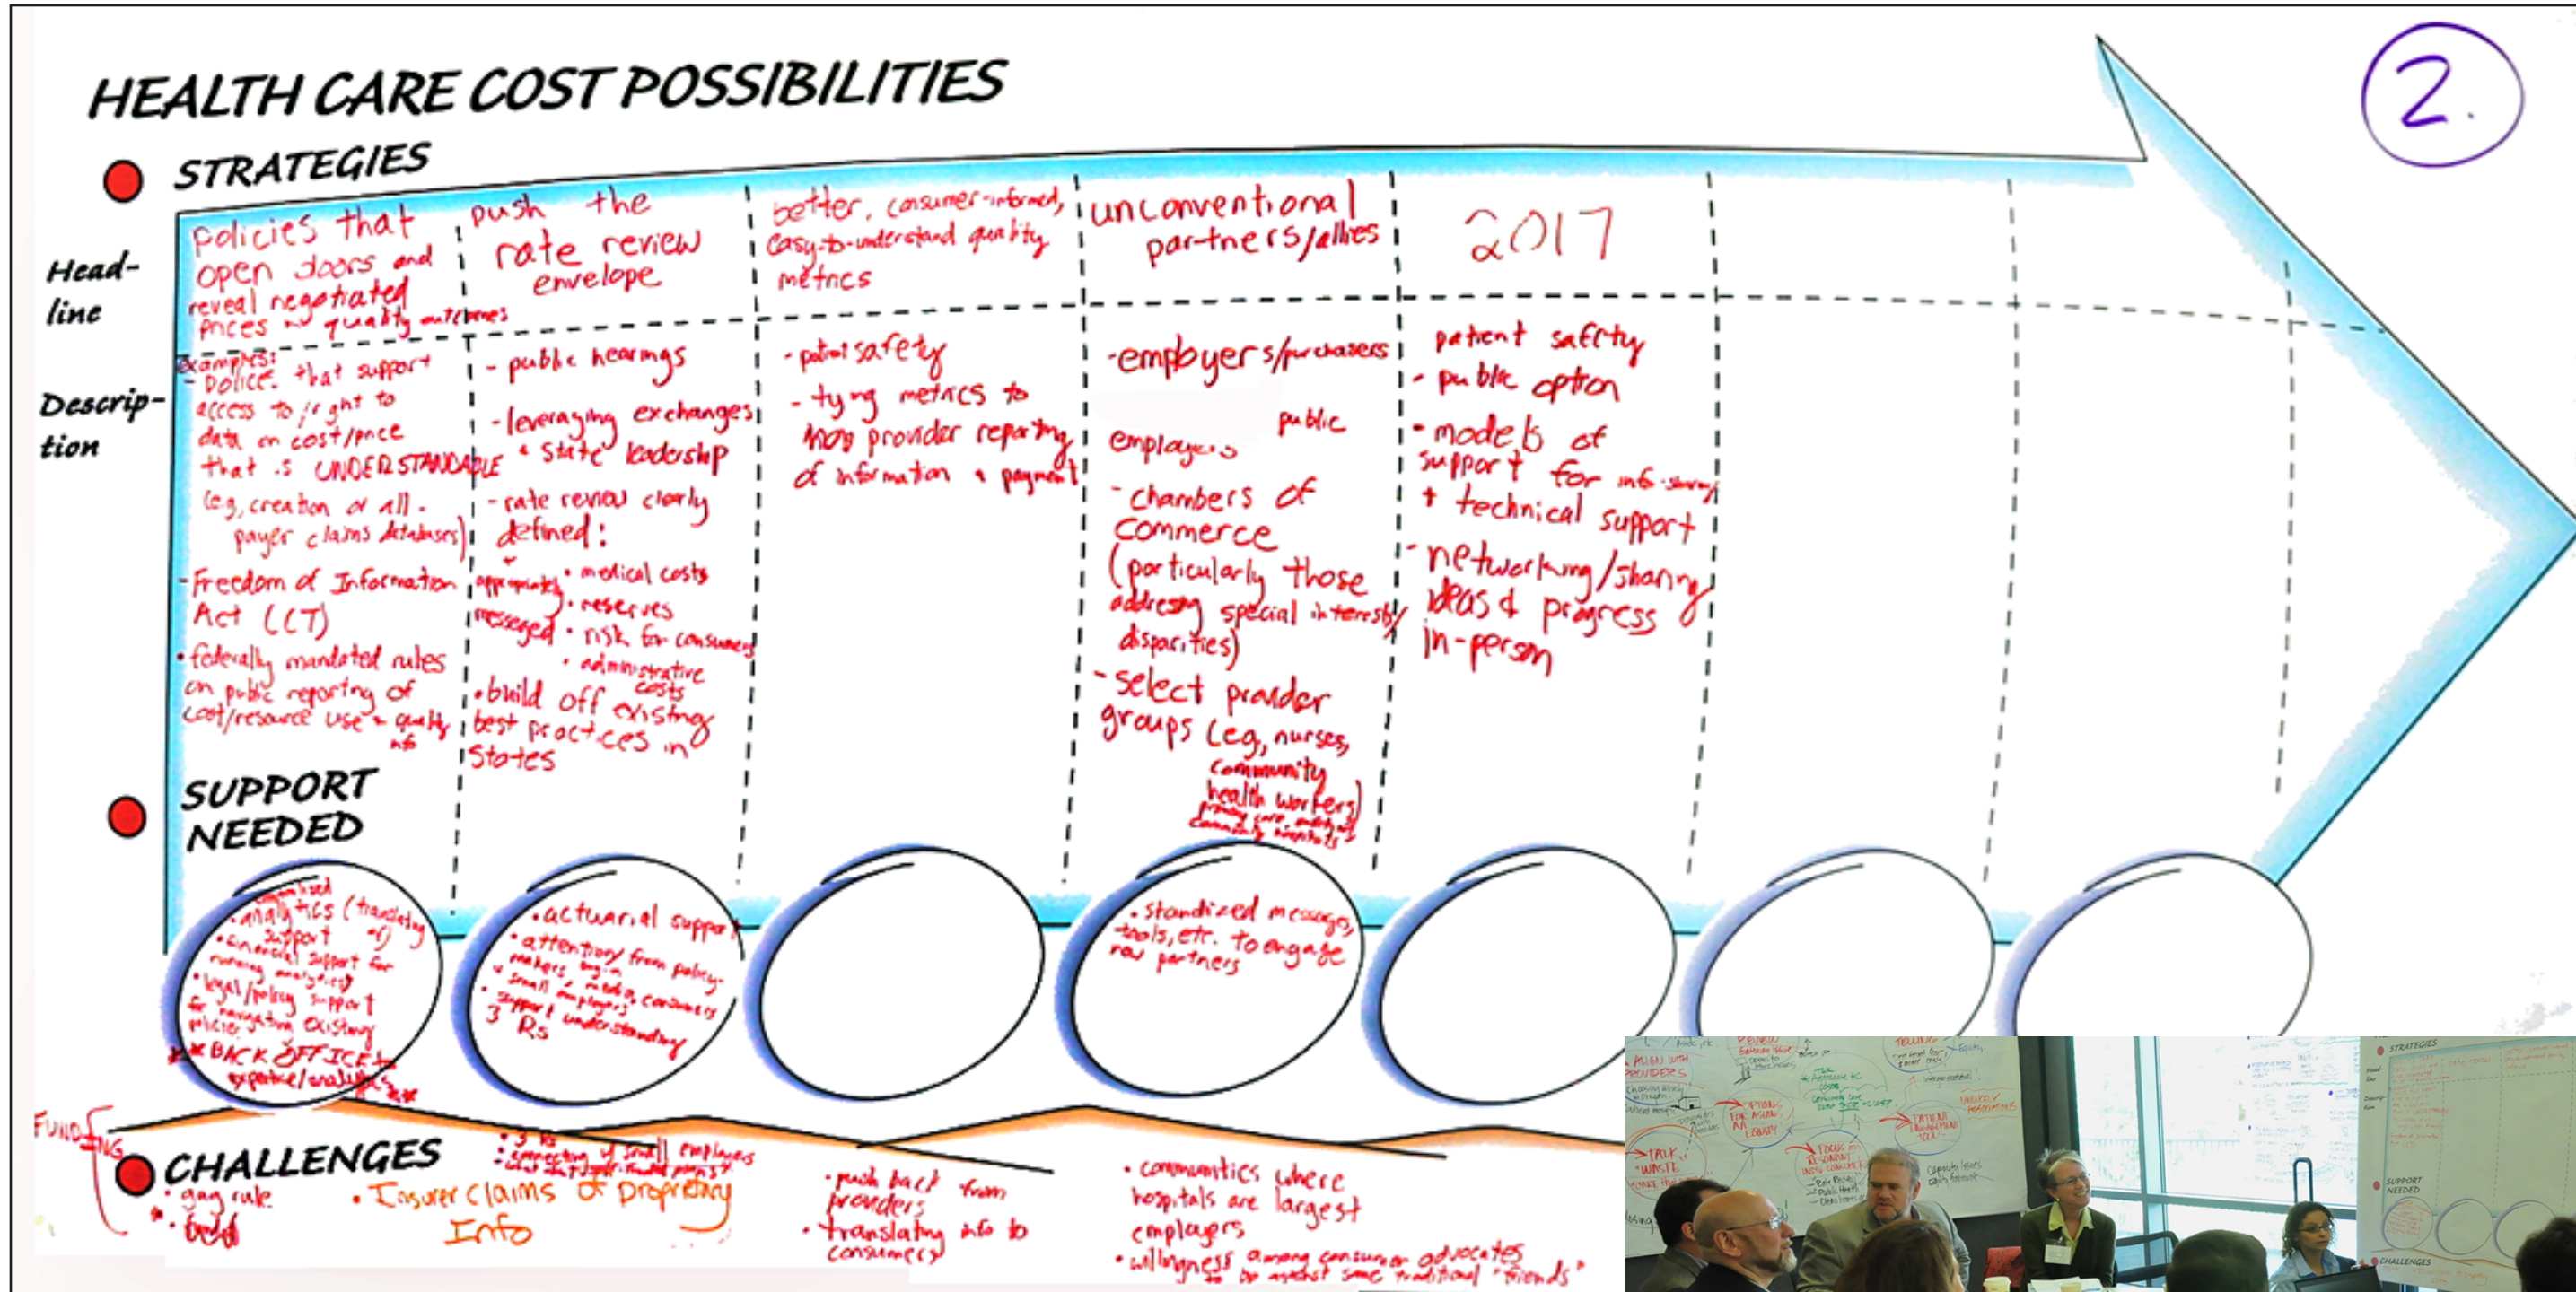 HEALTH CARE COST POSSIBILITIES
2.
STRATEGIES
Head-
line
policies that
open doors and
reveal negotiated
prices quality outcomes
push the
rate review
envelope
better, consumer-informed,
easy-to-understand quality
metrics
unconventional
partners/allies
2017
Descrip-
tion
examples:
- police. that support
access to/right to
data on cost/price
that is UNDERSTANDABLE
(e.g, creation of all-
payer claims databases)
- Freedom of Information
Act (CT)
• federally mandated rules
on public reporting of
cost/resource use + quality
info
- public hearings
- leveraging exchanges
+ state leadership
- rate review clearly
defined:
+
appropriately
messaged
• medical costs
• reserves
• risk for consumers
• administrative
costs
• build off existing
best practices in
states
- patient safety
- tying metrics to
provider reporting
of information + payment
- employers/purchasers
public
employers
- chambers of
commerce
(particularly those
addressing special interests/
disparities)
- select provider
groups (e.g., nurses,
community
health workers)
primary care,
community hospitals
patient safety
- public option
- models of
support for info-sharing
+ technical support
- networking/sharing
ideas & progress
in-person
SUPPORT
NEEDED
• analytics (translating
of)
support
• financial support for
running analytics)
• legal/policy support
for navigating existing
policies
** BACK OFFICE
expertise/analytics **
• actuarial support
• attention from policy-
makers, media, consumers
+ small employers
• support understanding
3 Rs
• standized messages,
tools, etc. to engage
new partners
FUNDING
CHALLENGES
• gag rule
• 3 Rs
• connecting w/ small employers
• Insurer claims of Proprietary
Info
• push back from
providers
• translating info to
consumers
• communities where
hospitals are largest
employers
• willingness among consumer advocates
to be against some traditional "friends"
ALIGN WITH
PROVIDERS
STRATEGIES
SUPPORT
NEEDED
CHALLENGES